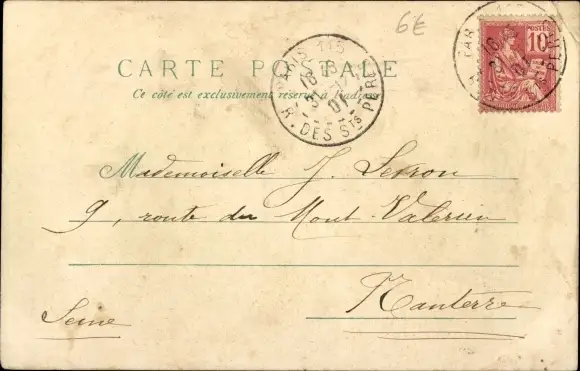 6€
CARTE POSTALE
Ce côté est exclusivement réservé à l'adresse
PARIS 115
R. DES Sts PERES
POSTES
10
Mademoiselle J.
9, route du Mont-Valérien
Nanterre
Seine